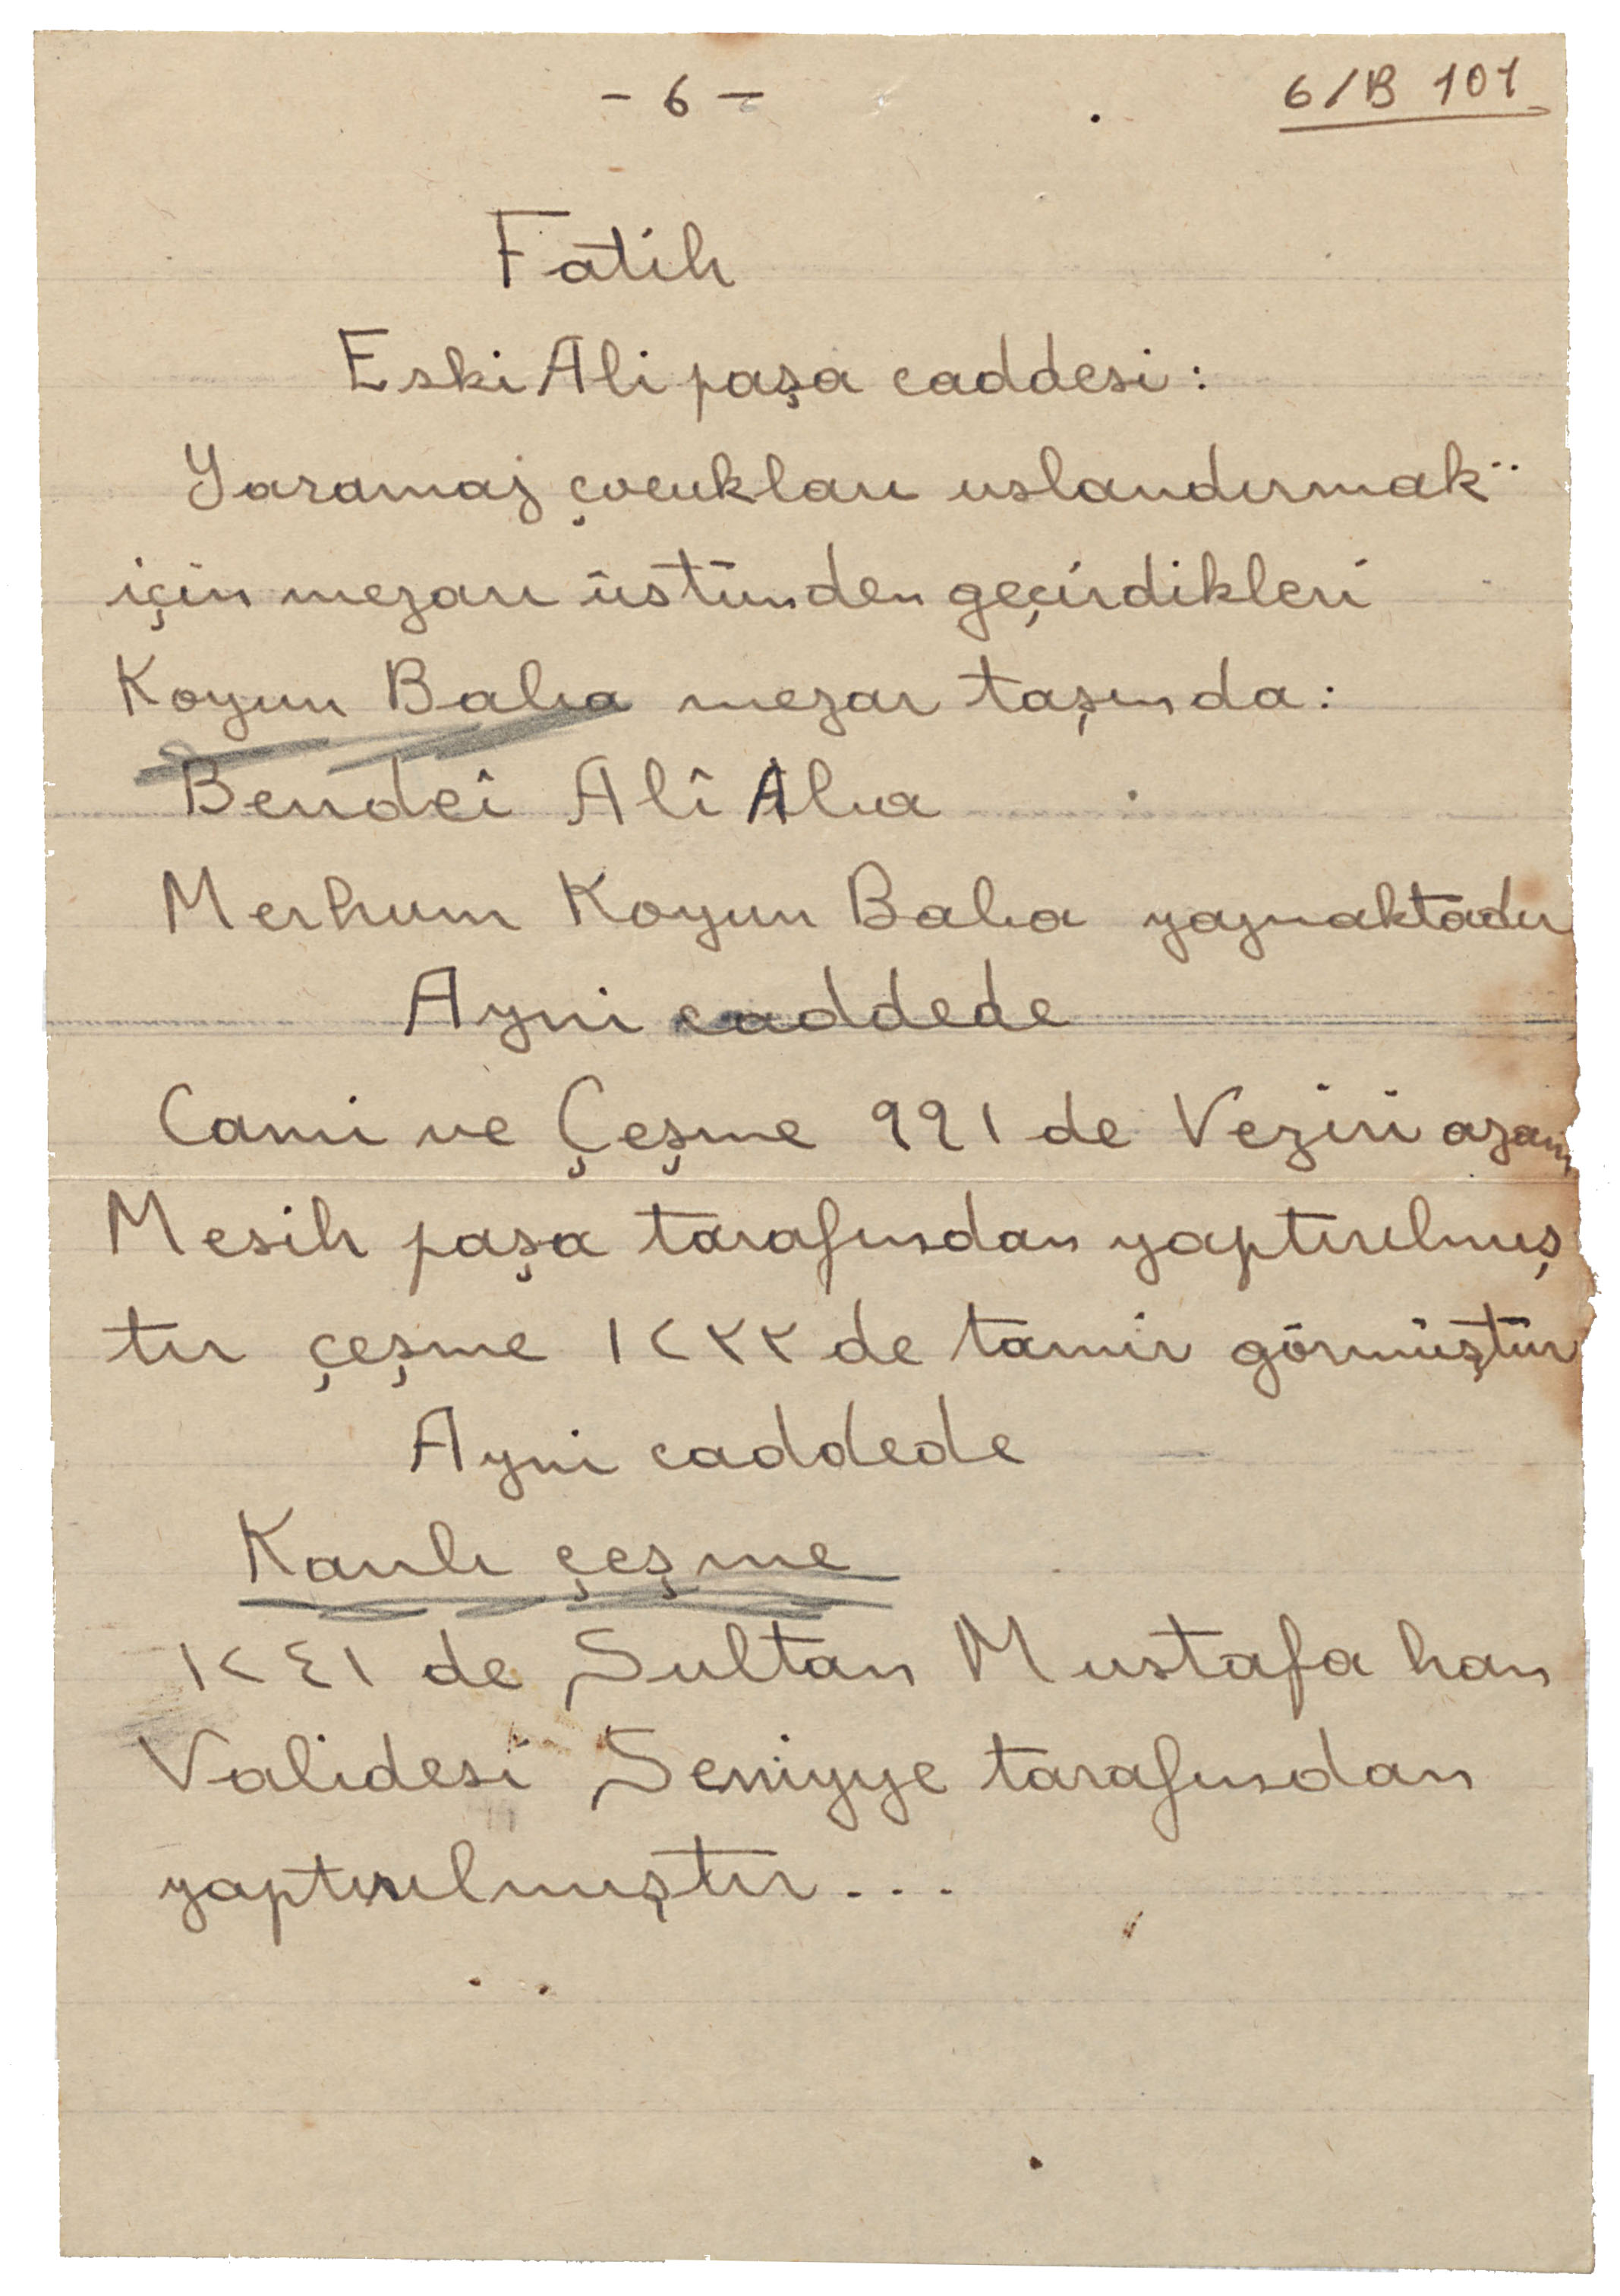 - 6 -
6/B 101
Fatih
Eski Ali paşa caddesi :
Yaramaz çocukları uslandırmak
için mezarı üstünden geçirdikleri
Koyun Baba mezar taşında :
Bendei Alî Aba
Merhum Koyun Baba yazmaktadır
Ayni caddede
Cami ve Çeşme ٩٩١ de Veziri azam
Mesih paşa tarafından yaptırılmış
tır çeşme ١٢٣٣ de tamir görmüştür
Ayni caddede
Kanlı çeşme
١٢٤١ de Sultan Mustafa han
Validesi Seniyye tarafından
yaptırılmıştır...